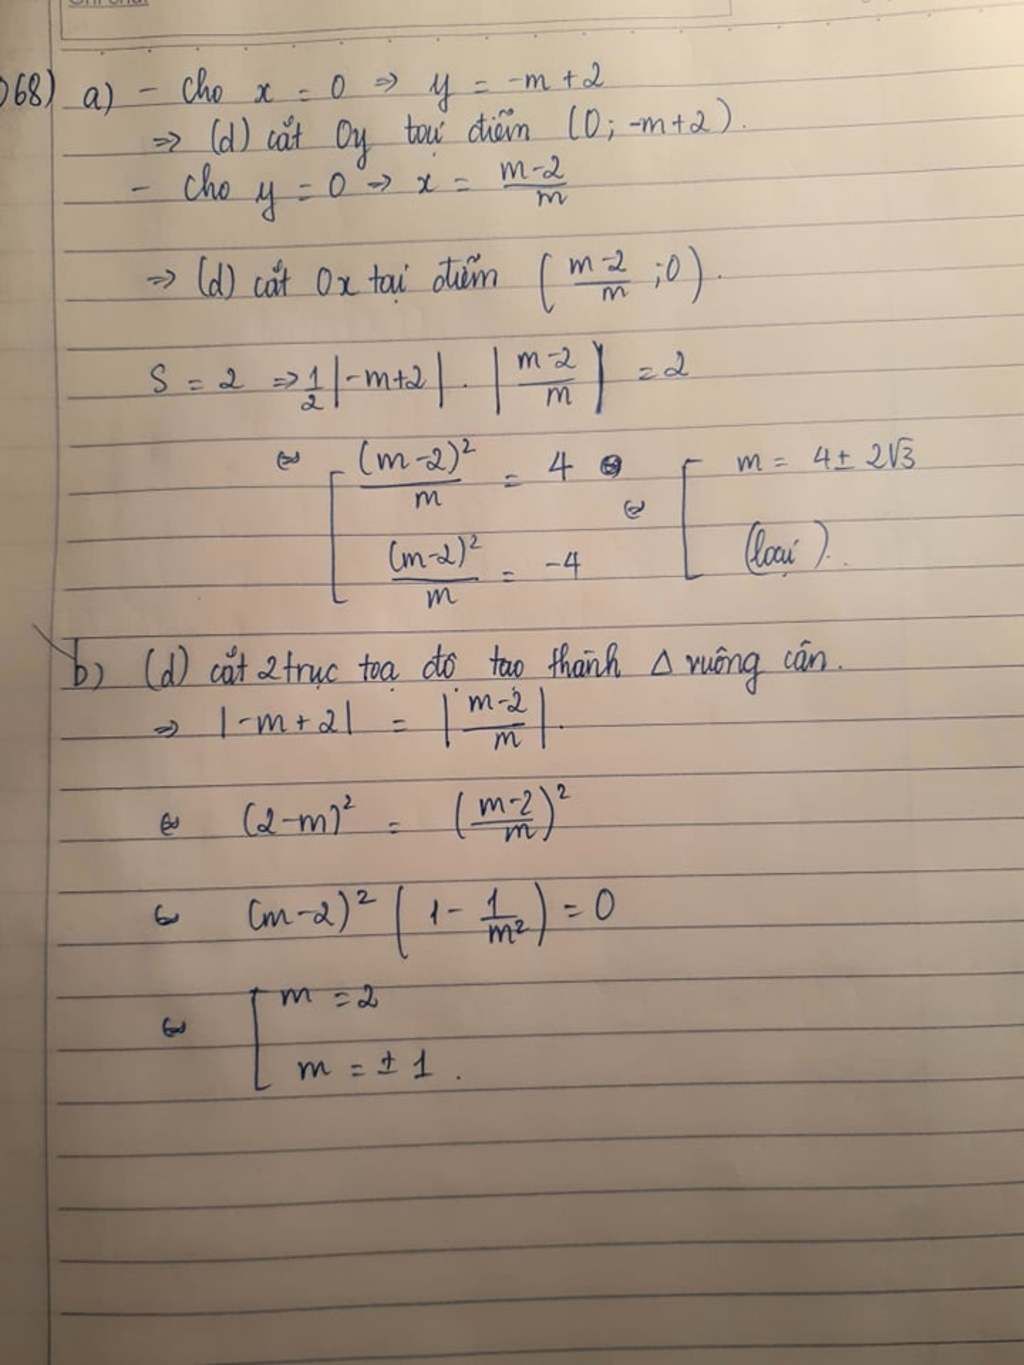 068) a) - Cho x = 0 => y = -m + 2
=> (d) cắt Oy tại điểm (0; -m+2).
- Cho y = 0 => x = \frac{m-2}{m}
=> (d) cắt Ox tại điểm (\frac{m-2}{m}; 0).
S = 2 => \frac{1}{2}|-m+2| . |\frac{m-2}{m}| = 2
⇔ [ \frac{(m-2)^2}{m} = 4 ⇔ [ m = 4 ± 2√3
\frac{(m-2)^2}{m} = -4 (loại).
b) (d) cắt 2 trục toạ độ tạo thành Δ vuông cân.
=> |-m+2| = |\frac{m-2}{m}|.
⇔ (2-m)^2 = (\frac{m-2}{m})^2
⇔ (m-2)^2 (1 - \frac{1}{m^2}) = 0
⇔ [ m = 2
m = ± 1.